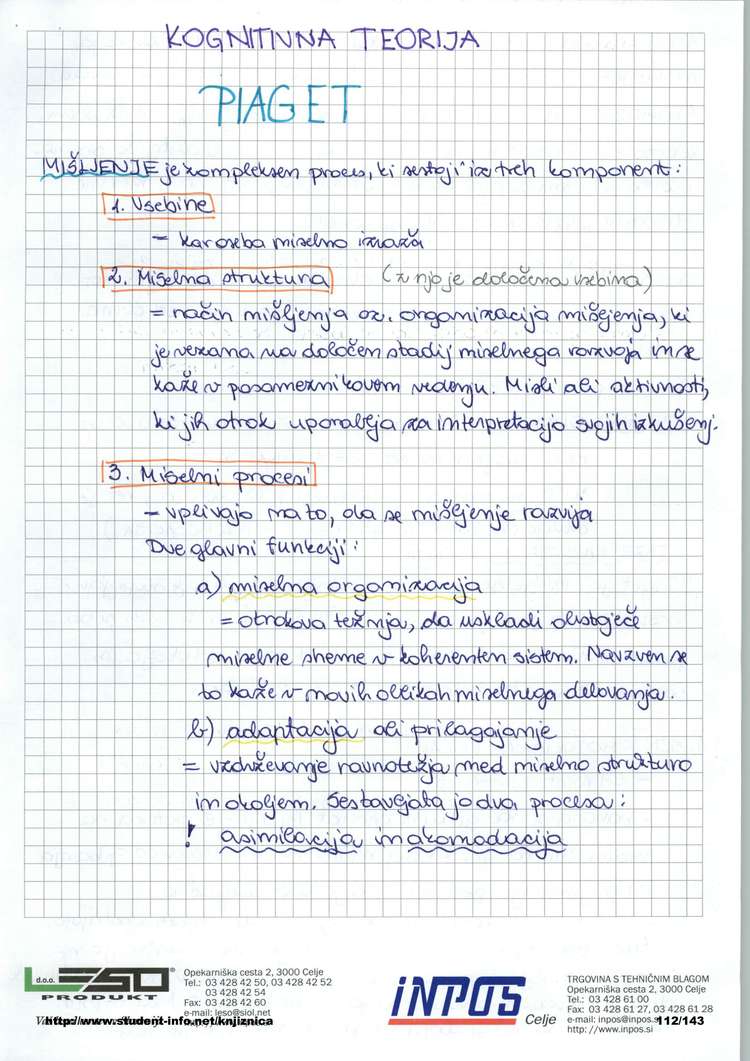 KOGNITIVNA TEORIJA
PIAGET
MIŠLJENJE je kompleksen proces, ki sestoji iz treh komponent:
1. Vsebine
- kar oseba miselno izraža
2. Miselna struktura (z njo je določena vsebina)
= način mišljenja oz. organizacija mišljenja, ki
je vezana na določen stadij miselnega razvoja in se
kaže v posameznikovem vedenju. Misli ali aktivnosti,
ki jih otrok uporablja za interpretacijo svojih izkušenj.
3. Miselni procesi
- vplivajo na to, da se mišljenje razvija
Dve glavni funkciji:
a) miselna organizacija
= otrokova težnja, da uskladi obstoječe
miselne sheme v koherenten sistem. Navzven se
to kaže v novih oblikah miselnega delovanja.
b) adaptacija ali prilagajanje
= vzdrževanje ravnotežja med miselno strukturo
in okoljem. Sestavljata jo dva procesa:
! asimilacija in akomodacija
d.o.o. LESO PRODUKT ®
Opekarniška cesta 2, 3000 Celje
Tel.: 03 428 42 50, 03 428 42 52
03 428 42 54
Fax: 03 428 42 60
e-mail: leso@siol.net
http://www.student-info.net/knjiznica
INPOS Celje
TRGOVINA S TEHNIČNIM BLAGOM
Opekarniška cesta 2, 3000 Celje
Tel.: 03 428 61 00
Fax: 03 428 61 27, 03 428 61 28
e-mail: inpos@inpos.s
112/143
http://www.inpos.si